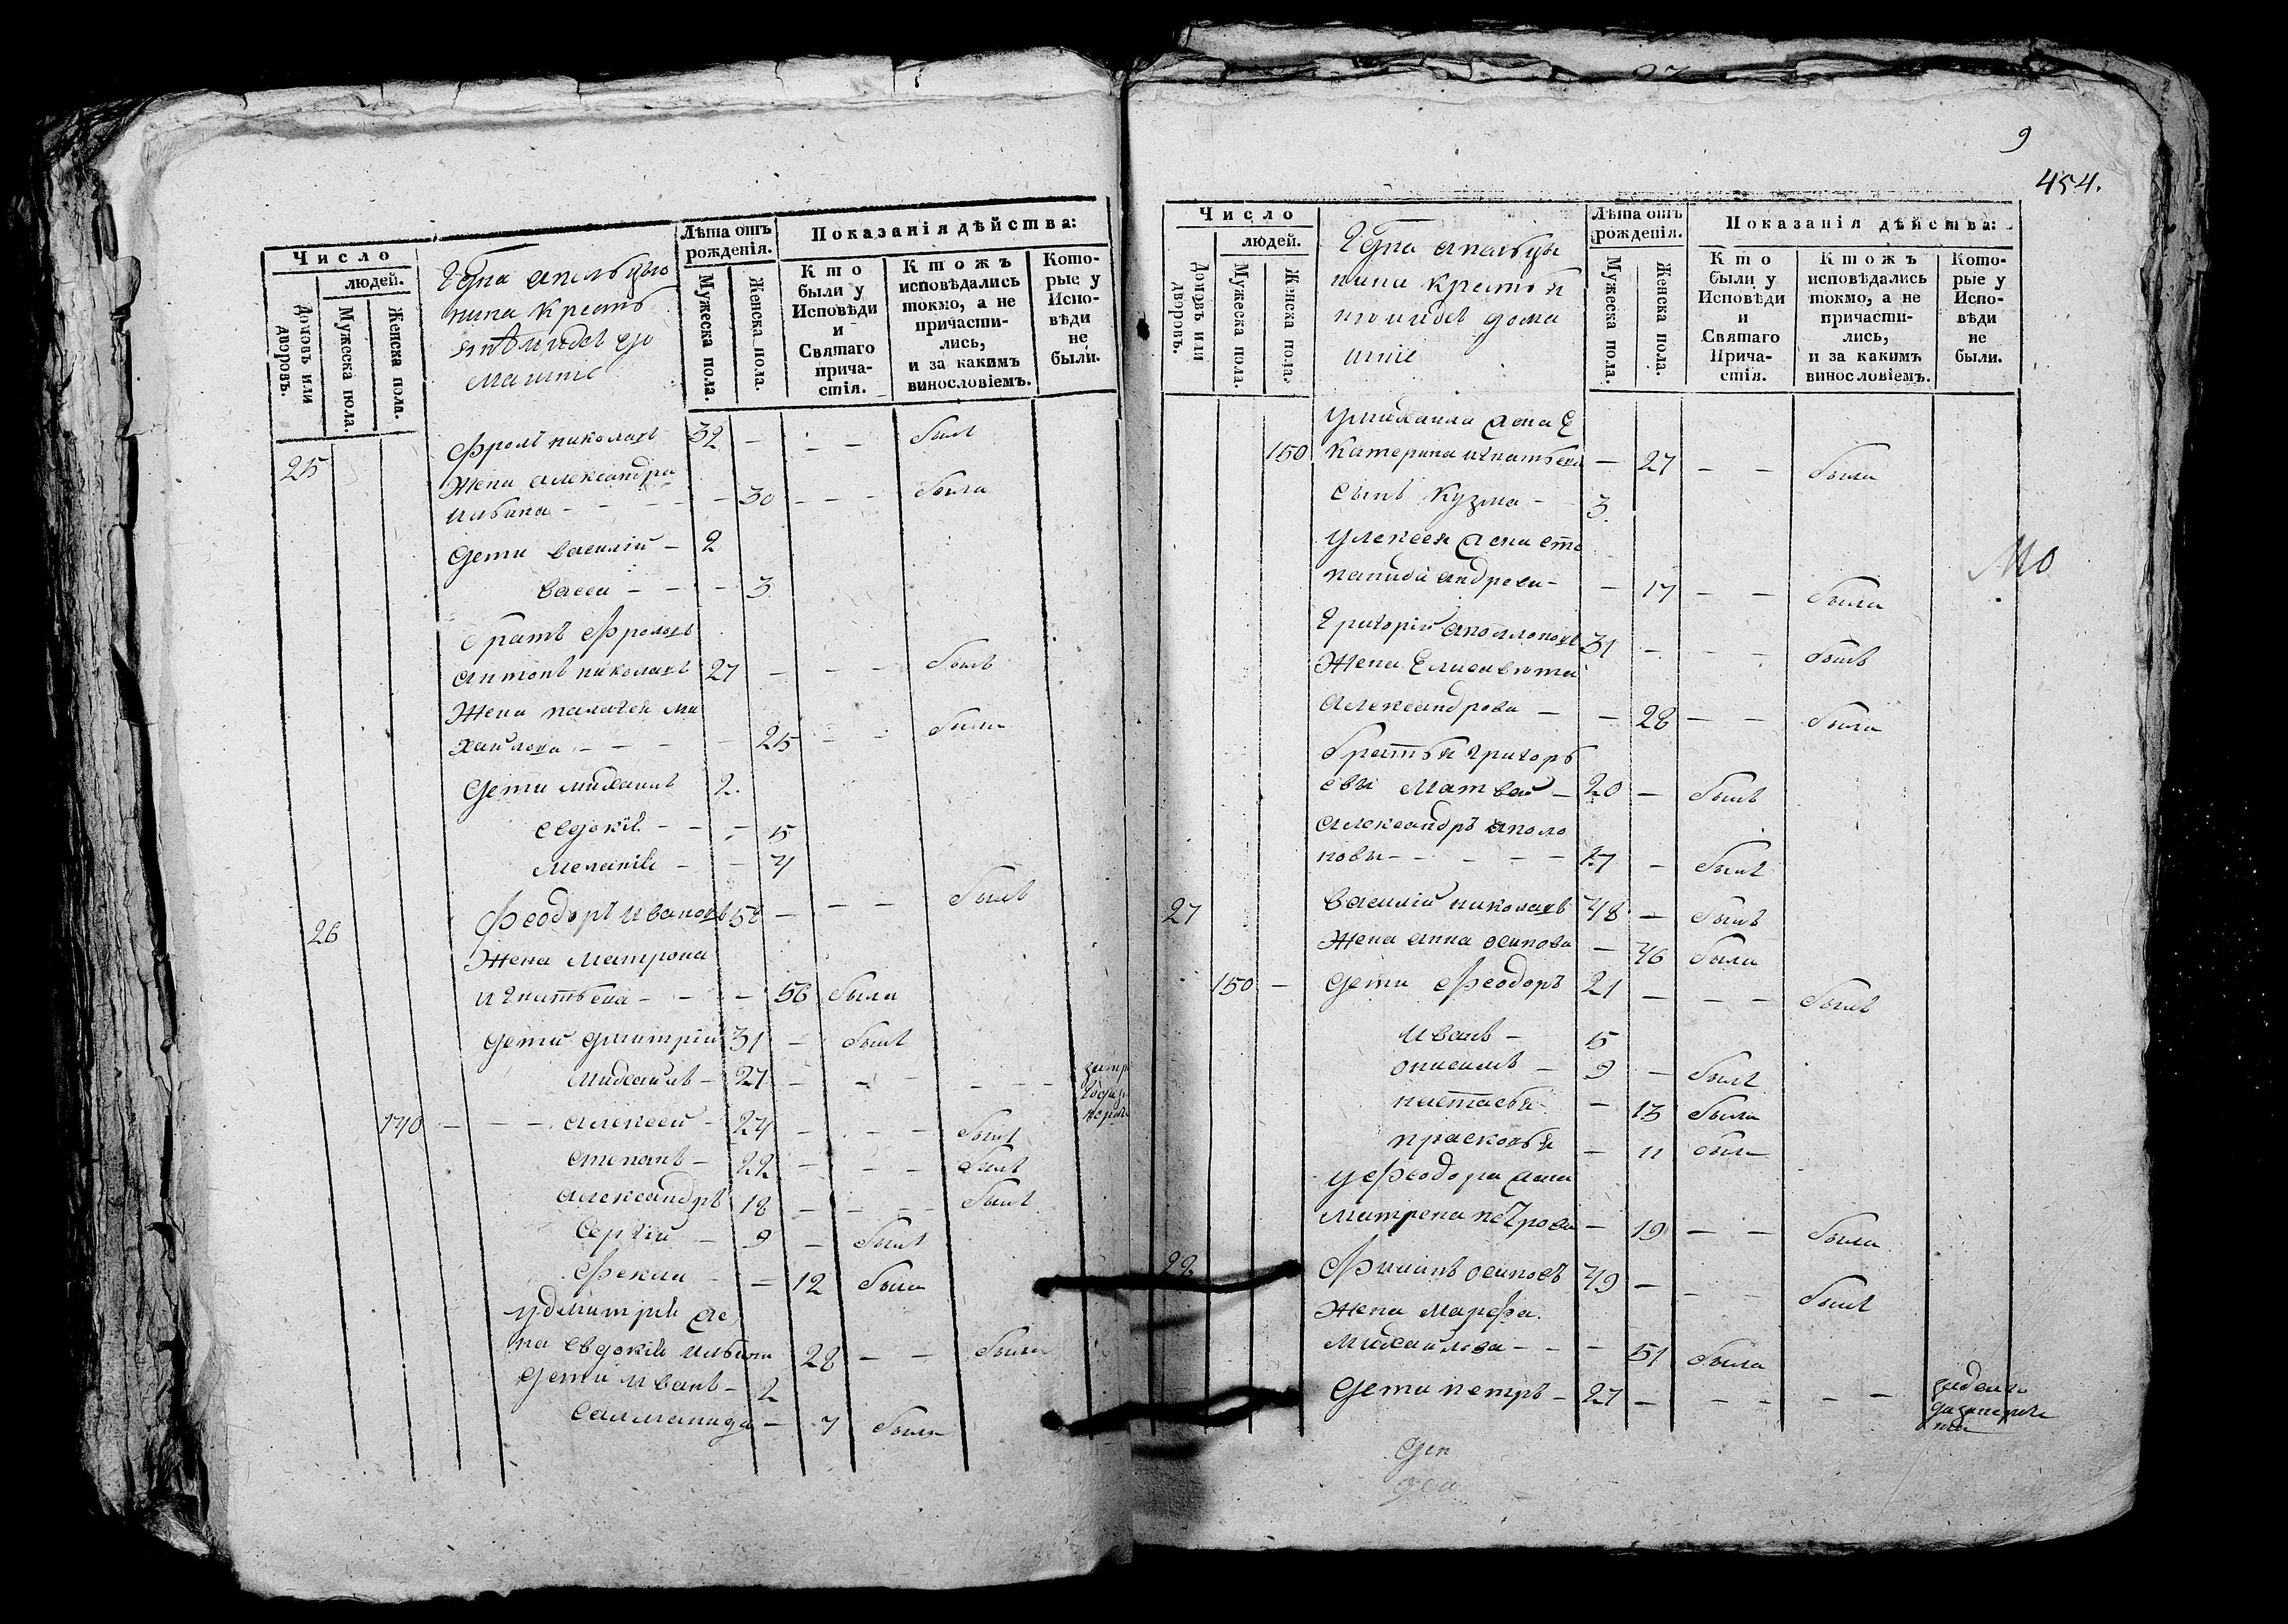 Число
людей.
Домовъ или дворовъ.
Мужеска пола.
Женска пола.
Лѣта отъ рожденія.
Мужеска пола.
Женска пола.
Показанія дѣйства:
Кто были у Исповѣди и Святаго прича-стія.
Ктожъ исповѣдались токмо, а не причасти-лись, и за какимъ винословіемъ.
Кото-рые у Испо-вѣди не были.
25 Фролъ николаевъ 32 — — — былъ
Жена александра
ильина — — 30 — — — была
Дети василій — 2
васса — — — 3
братъ Фроловъ
антонъ николаевъ 27 — — — былъ
Жена палагея ми
хайлова — — — — 25 — — была
Дети михаилъ 2.
евдокія — — — 5
меланія — — 4
26 Феодоръ ивановъ 58 — — — былъ
Жена матрона
игнатьева — — — 56 была
Дети дмитрій 31 — былъ
михаилъ — 27 — — — — — —
140 — — — алексей — 24 — — — былъ
степанъ — 22 — — — былъ
александръ 18 — — — — былъ
Сергій — 9 — былъ
Фекла — — 12 была
удмитрія же
на евдокія ильина 28 — — была
Дети иванъ — 2
саламанида — 7 была
9
454.
Число
людей.
Домовъ или дворовъ.
Мужеска пола.
Женска пола.
Лѣта отъ рожденія.
Мужеска пола.
Женска пола.
Показанія дѣйства:
Кто были у Исповѣди и Святаго Прича-стія.
Ктожъ исповѣдались токмо, а не причасти-лись, и за какимъ винословіемъ.
Кото-рые у Испо-вѣди не были.
умихаила жена е
150 катерина игнатьева — 27 — — была
сынъ кузма — 3
уалексея жена сте
панида андреева — — 17 — — была
григорій аполлоновъ 31 — — — былъ
Жена елисавета
александрова — — 28 — — была
братья григорь
евы матвей — 20 — былъ
александръ аполо
новы — — — — 17 — былъ
27 василій николаевъ 48 — былъ
Жена анна осипова — 46 была
150 — Дети Феодоръ 21 — — — былъ
иванъ — 15
онисимъ — 9 — былъ
настасья — 13 была
прасковья — 11 была
уФеодора жена
матрена петрова — 19 — — была
28 Филипъ осиповъ 49 — — — былъ
Жена марфа
михайлова — — — 51 была
Дети петръ — 27 — — — — —